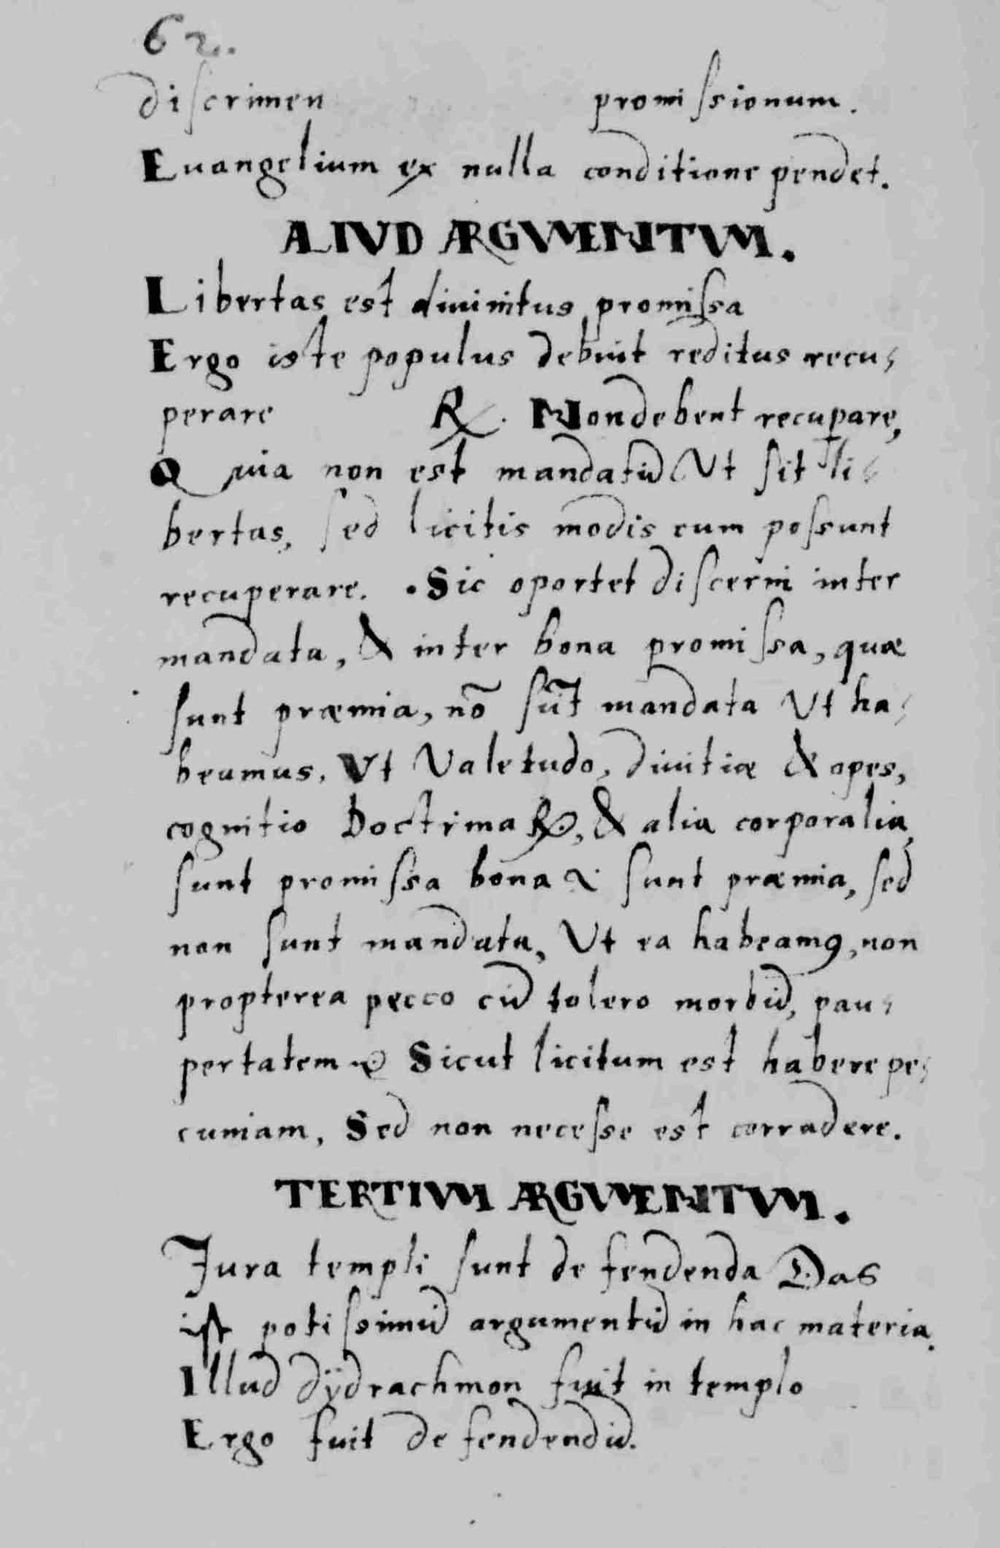 62.
discrimen promissionum.
Euangelium ex nulla conditione pendet.
ALIVD ARGVMENTVM.
Libertas est diuinitus promissa
Ergo iste populus debuit reditus recu-
perare ℟. Non debent recuꝑare,
Quia non est mandatũ Vt sit li-
bertas, sed licitis modis cum possunt
recuperare. Sic oportet discerni inter
mandata, & inter bona promissa, quæ
sunt præmia, nõ sũt mandata Vt ha-
beamus, Vt Valetudo, diuitiæ & opes,
cognitio Doctrinæ, & alia corporalia,
sunt promissa bona & sunt præmia, sed
non sunt mandata, Vt ea habeamꝰ, non
propterea pecco cũ tolero morbũ, pau-
pertatem Sicut licitum est habere pe-
cuniam, Sed non necesse est corradere.
TERTIVM ARGVMENTVM.
Jura templi sunt defendenda Das
ist potissimũ argumentũ in hac materia.
Illud dÿdrachmon fuit in templo
Ergo fuit defendendũ.